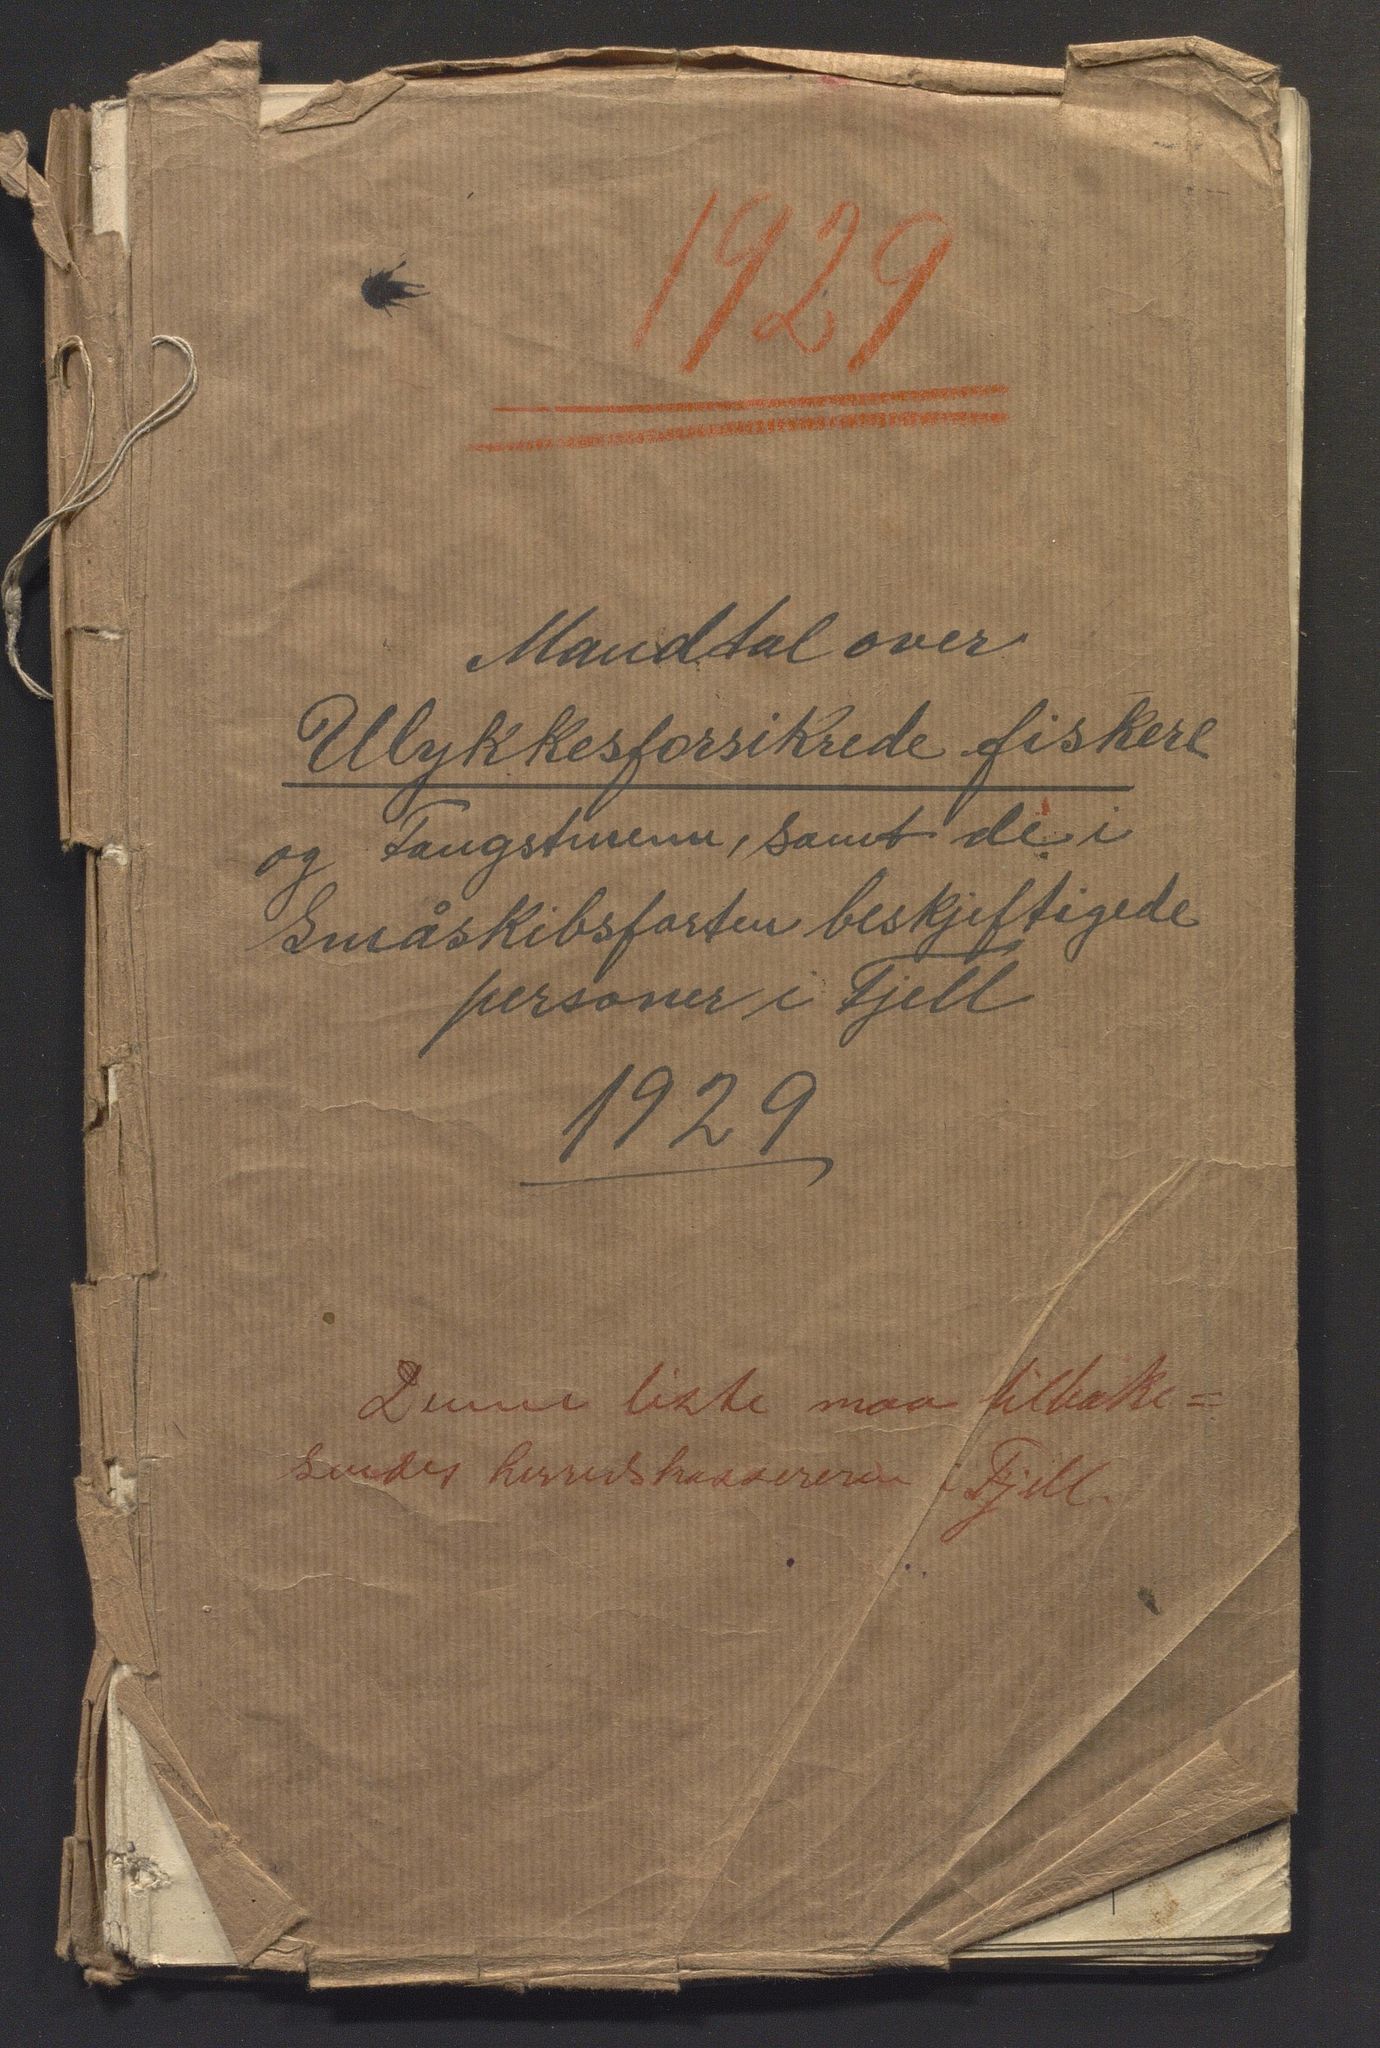 1929
Mandtal over
Ulykkesforsikrede fiskere
og Fangstmenn, samt de i
Småskibsfarten beskjeftigede
personer i Fjell
1929
Denne liste maa tilbake=
sendes herredskassereren i Fjell.